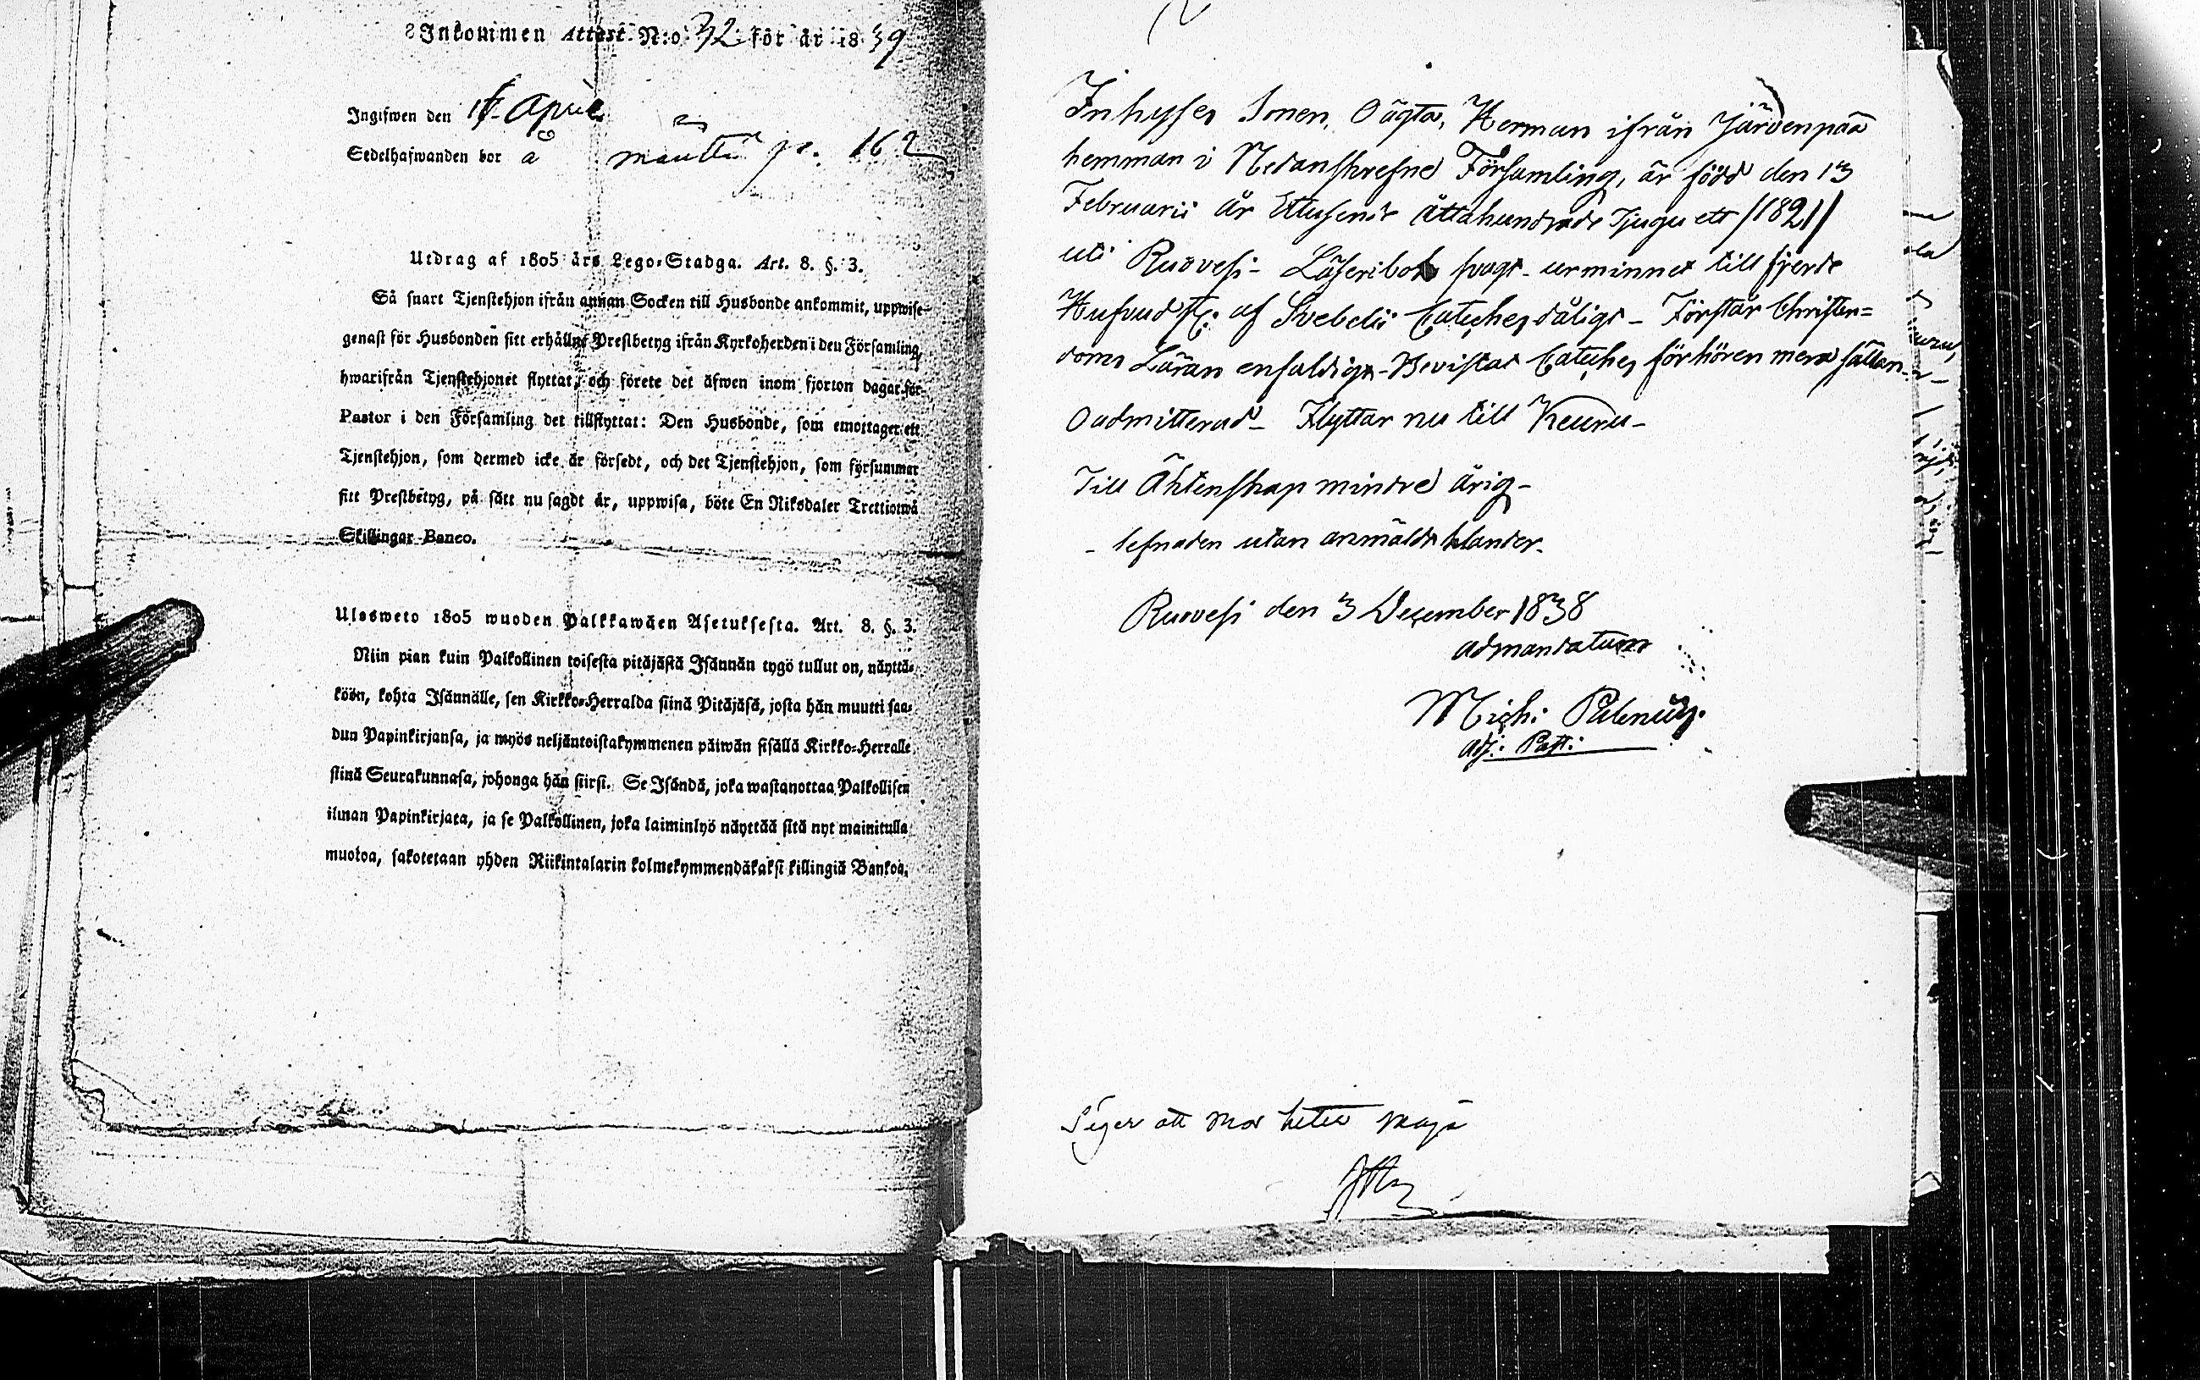 Inkommen Attest N:o 32 för år 1839
Ingifwen den April
Sedelhafwanden bor å Mänttä p. 162
Utdrag af 1805 års Lego-Stadga. Art. 8. §. 3.
Så snart Tjenstehjon ifrån annan Socken till Husbonde ankommit, uppwise
genast för Husbonden sitt erhållne Prestbetyg ifrån Kyrkoherden i den Församling,
hwarifrån Tjenstehjonet flyttat, och förete det äfwen inom fjorton dagar för
Pastor i den Församling det tillflyttat: Den Husbonde, som emottager ett
Tjenstehjon, som dermed icke är försedt, och det Tjenstehjon, som försummar
sitt Prestbetyg, på sätt nu sagdt är, uppwisa, böte En Riksdaler Trettiotwå
Skillingar Banco.
Ulosweto 1805 wuoden Palkkawäen Asetuksesta. Art. 8. §. 3.
Niin pian kuin Palkollinen toisesta pitäjästä Isännän tygö tullut on, näyttä-
köön, kohta Isännälle, sen Kirkko-Herralda siinä Pitäjäsä, josta hän muutti saa-
dun Papinkirjansa, ja myös neljäntoistakymmenen päiwän sisällä Kirkko-Herralle
siinä Seurakunnasa, johonga hän siirsi. Se Isändä, joka wastanottaa Palkollisen
ilman Papinkirjata, ja se Palkollinen, joka laiminlyö näyttää sitä nyt mainitulla
muotoa, sakotetaan yhden Riikintalarin kolmekymmendäkaksi killingiä Bankoa.
Inhyses Sonen, Oägta, Herman ifrån Järvenpää
hemman i Nedanskrefne Församling, är född den 13
Februarii år Ettusende åttahundrade Tjugu ett /1821/
uti Ruovesi - Läser i bok svagt - urminnet till fjerde
Hufvud St: af Svebelii Cateches dåligt - Förstår Christen=
doms Läran enfaldigt - Bevistat Cateches förhören mera sällan -
Oadmitterad - Flyttar nu till Keuru -
Till Äktenskap mindre årig -
- lefnaden utan anmäldt klander.
Ruovesi den 3 December 1838
ad mandatum
Mich:
Adj: Past:
Säger att Mor heter Maja